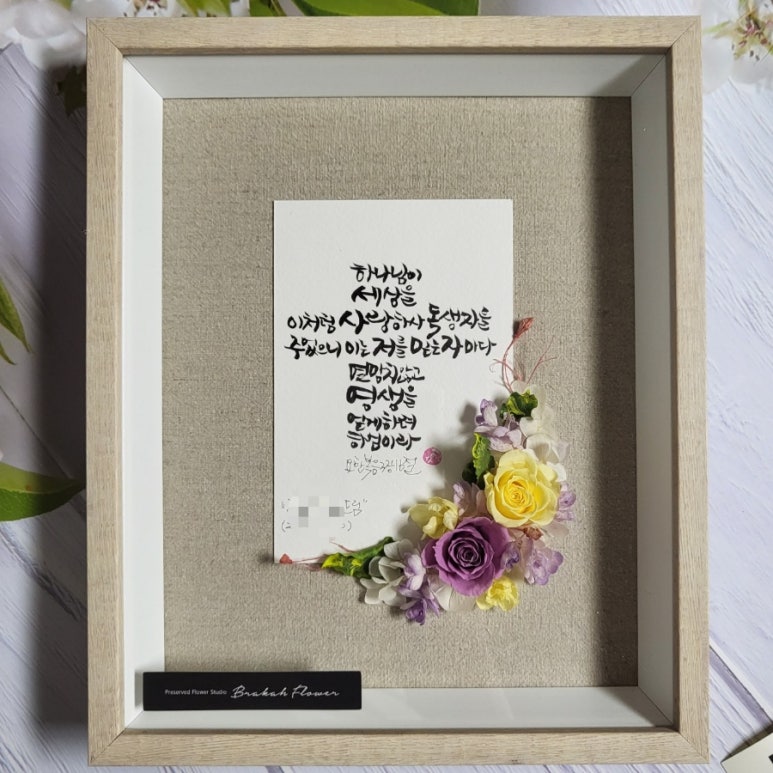 하나님이
세상을
이처럼 사랑하사 독생자를
주셨으니 이는 저를 믿는 자마다
멸망치 않고
영생을
얻게하려
하심이라
요한복음 3장 16절
드림"
Preserved Flower Studio Brakah Flower